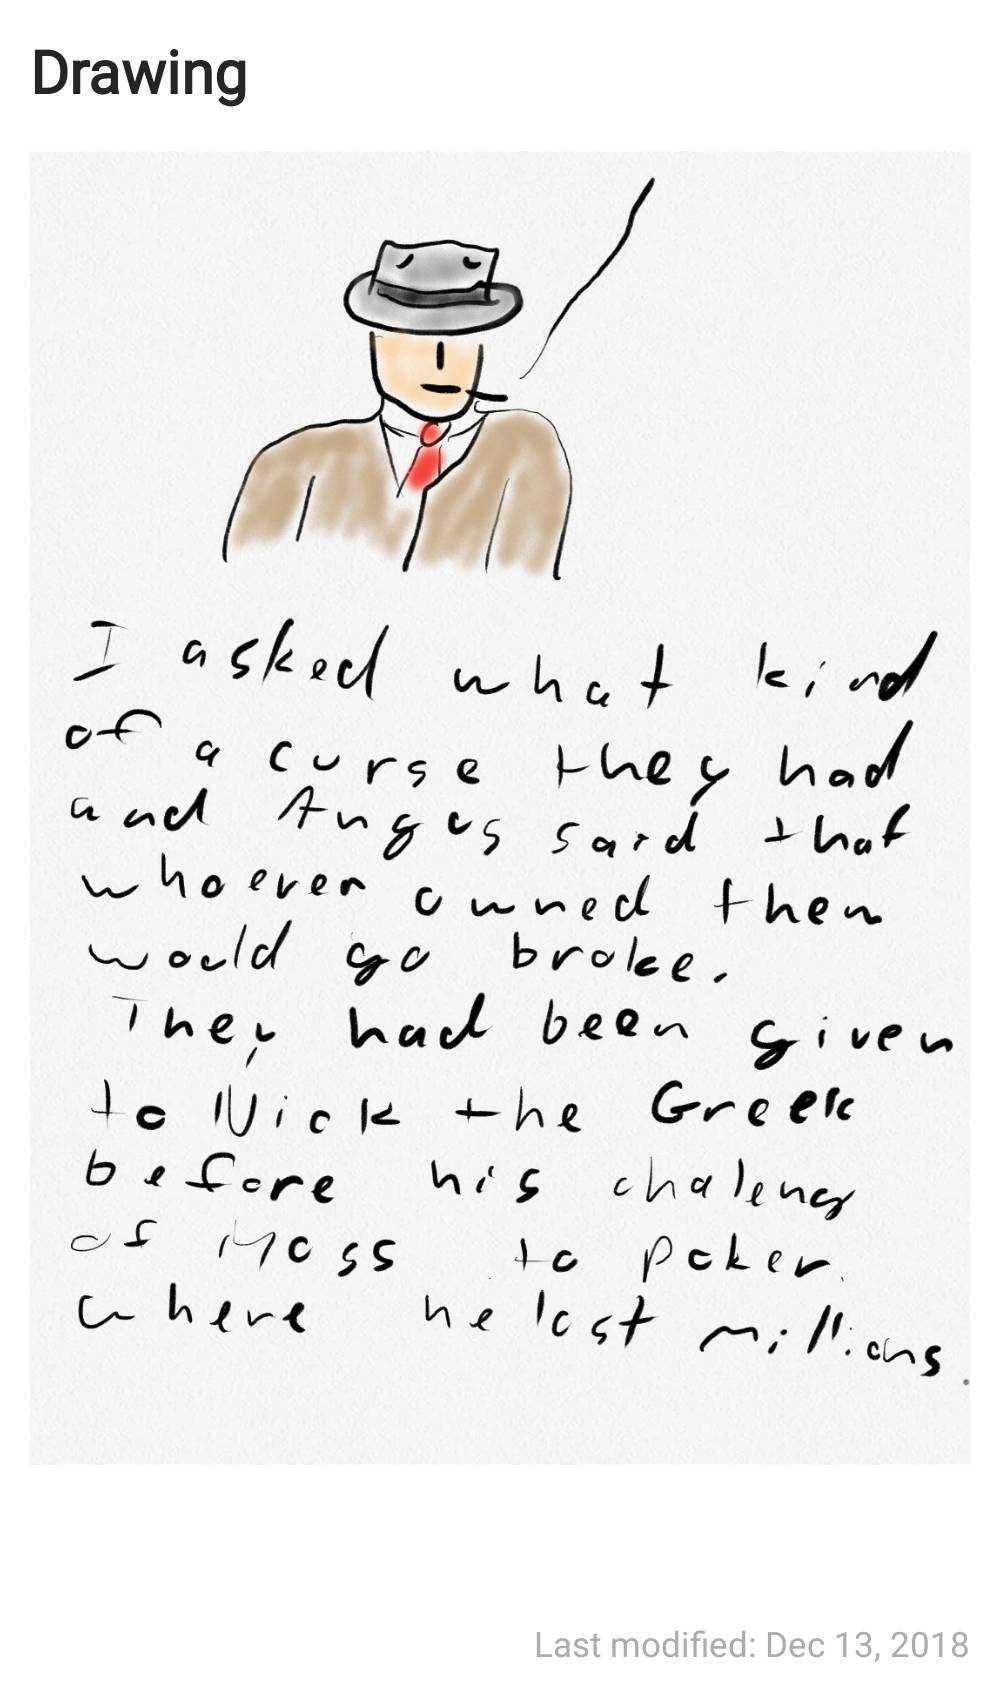 Drawing
I asked what kind
of a curse they had
and Angus said that
whoever owned them
would go broke.
They had been given
to Nick the Greek
before his chaleng
of Moss to poker
where he lost millions.
Last modified: Dec 13, 2018